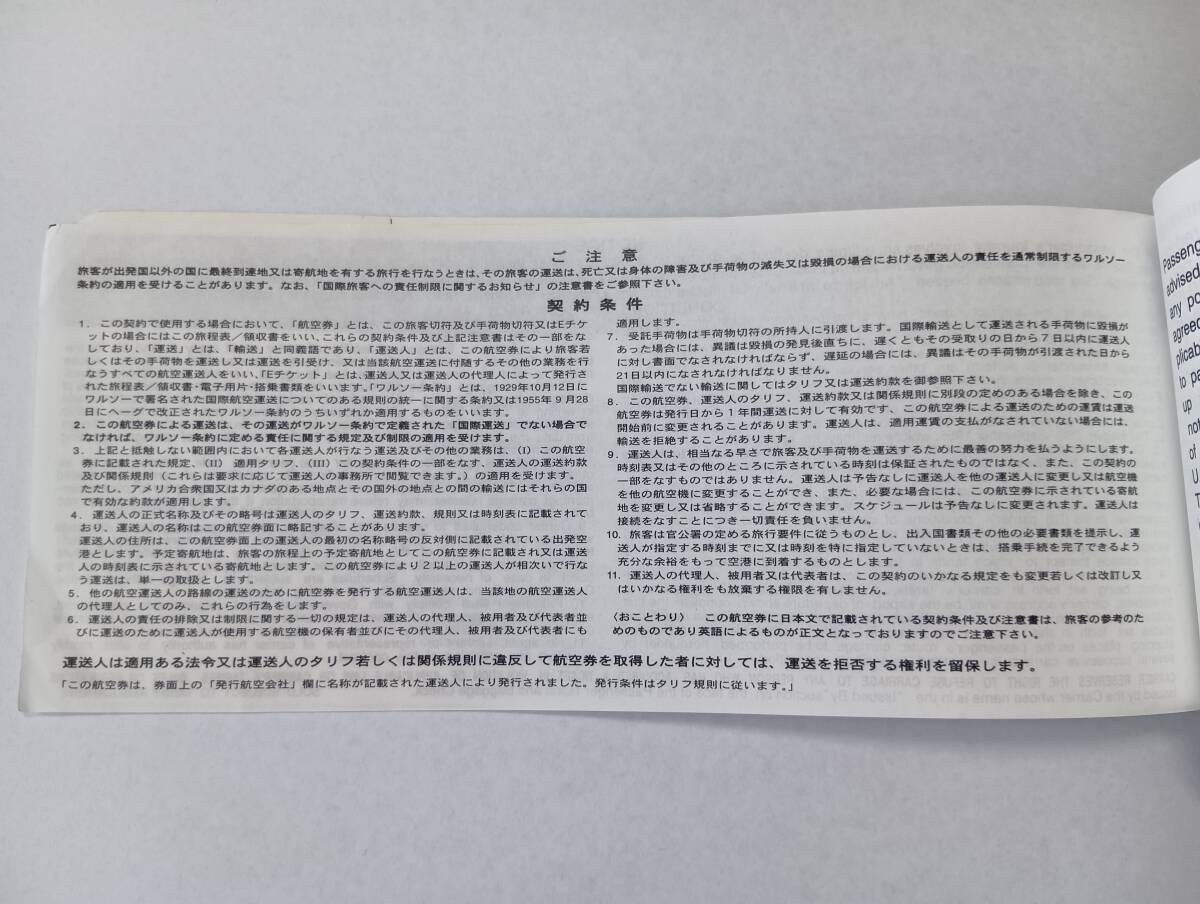 ご注意
旅客が出発国以外の国に最終到達地又は寄航地を有する旅行を行なうときは、その旅客の運送は、死亡又は身体の障害及び手荷物の滅失又は毀損の場合における運送人の責任を通常制限するワルソー
条約の適用を受けることがあります。なお、「国際旅客への責任制限に関するお知らせ」の注意書をご参照下さい。
契約条件
1. この契約で使用する場合において、「航空券」とは、この旅客切符及び手荷物切符又はEチケ
ットの場合にはこの旅程表/領収書をいい、これらの契約条件及び上記注意書はその一部をな
しており、「運送」とは、「輸送」と同義語であり、「運送人」とは、この航空券により旅客若
しくはその手荷物を運送し又は運送を引受け、又は当該航空運送に付随するその他の業務を行
なうすべての航空運送人をいい、「Eチケット」とは、運送人又は運送人の代理人によって発行さ
れた旅程表/領収書・電子用片・搭乗書類をいいます。「ワルソー条約」とは、1929年10月12日に
ワルソーで署名された国際航空運送についてのある規則の統一に関する条約又は1955年9月28
日にヘーグで改正されたワルソー条約のうちいずれか適用するものをいいます。
2. この航空券による運送は、その運送がワルソー条約で定義された「国際運送」でない場合で
なければ、ワルソー条約に定める責任に関する規定及び制限の適用を受けます。
3. 上記と抵触しない範囲内において各運送人が行なう運送及びその他の業務は、(I) この航空
券に記載された規定、(II) 適用タリフ、(III) この契約条件の一部をなす、運送人の運送約款
及び関係規則(これらは要求に応じて運送人の事務所で閲覧できます。)の適用を受けます。
ただし、アメリカ合衆国又はカナダのある地点とその国外の地点との間の輸送にはそれらの国
で有効な約款が適用します。
4. 運送人の正式名称及びその略号は運送人のタリフ、運送約款、規則又は時刻表に記載されて
おり、運送人の名称はこの航空券面に略記することがあります。
運送人の住所は、この航空券面上の運送人の最初の名称略号の反対側に記載されている出発空
港とします。予定寄航地は、旅客の旅程上の予定寄航地としてこの航空券に記載され又は運送
人の時刻表に示されている寄航地とします。この航空券により2以上の運送人が相次いで行な
う運送は、単一の取扱とします。
5. 他の航空運送人の路線の運送のために航空券を発行する航空運送人は、当該他の航空運送人
の代理人としてのみ、これらの行為をします。
6. 運送人の責任の排除又は制限に関する一切の規定は、運送人の代理人、被用者及び代表者並
びに運送のために運送人が使用する航空機の保有者並びにその代理人、被用者及び代表者にも
適用します。
7. 受託手荷物は手荷物切符の所持人に引渡します。国際輸送として運送される手荷物に毀損が
あった場合には、異議は毀損の発見後直ちに、遅くともその受取りの日から7日以内に運送人
に対し書面でなされなければならず、遅延の場合には、異議はその手荷物が引渡された日から
21日以内になされなければなりません。
国際輸送でない輸送に関してはタリフ又は運送約款を御参照下さい。
8. この航空券、運送人のタリフ、運送約款又は関係規則に別段の定めのある場合を除き、この
航空券は発行日から1年間運送に対して有効です、この航空券による運送のための運賃は運送
開始前に変更されることがあります。運送人は、適用運賃の支払がなされていない場合には、
輸送を拒絶することがあります。
9. 運送人は、相当なる早さで旅客及び手荷物を運送するために最善の努力を払うようにします。
時刻表又はその他のところに示されている時刻は保証されたものではなく、また、この契約の
一部をなすものではありません。運送人は予告なしに運送人を他の運送人に変更し又は航空機
を他の航空機に変更することができ、また、必要な場合には、この航空券に示されている寄航
地を変更し又は省略することができます。スケジュールは予告なしに変更されます。運送人は
接続をなすことにつき一切責任を負いません。
10. 旅客は官公署の定める旅行要件に従うものとし、出入国書類その他の必要書類を提示し、運
送人が指定する時刻までに又は時刻を特に指定していないときは、搭乗手続を完了できるよう
充分な余裕をもって空港に到着するものとします。
11. 運送人の代理人、被用者又は代表者は、この契約のいかなる規定をも変更若しくは改訂し又
はいかなる権利をも放棄する権限を有しません。
〈おことわり〉 この航空券に日本文で記載されている契約条件及び注意書は、旅客の参考のた
めのものであり英語によるものが正文となっておりますのでご注意下さい。
運送人は適用ある法令又は運送人のタリフ若しくは関係規則に違反して航空券を取得した者に対しては、運送を拒否する権利を留保します。
「この航空券は、券面上の「発行航空会社」欄に名称が記載された運送人により発行されました。発行条件はタリフ規則に従います。」
Passeng
advised
any po
agreed
plicab
to pa
up
not
of
U
T